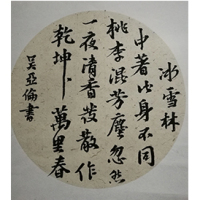 冰雪林
中著此身不同
桃李混芳塵忽然
一夜清香發散作
乾坤萬里春
吴亞倫書